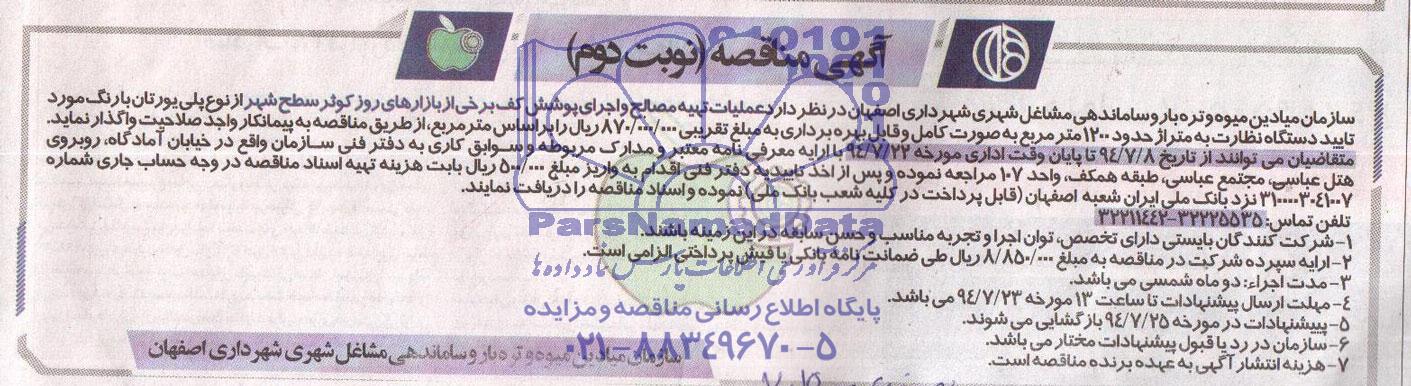 آگهی مناقصه (نوبت دوم)
سازمان میادین میوه و تره بار و ساماندهی مشاغل شهری شهرداری اصفهان در نظر دارد عملیات تهیه مصالح و اجرای پوشش کف برخی از بازارهای روز کوثر سطح شهر از نوع پلی یورتان با رنگ مورد
تایید دستگاه نظارت به متراژ حدود ۱۲۰۰ متر مربع به صورت کامل و قابل بهره برداری به مبلغ تقریبی ۸۷۰/۰۰۰/۰۰۰ ریال را براساس متر مربع، از طریق مناقصه به پیمانکار واجد صلاحیت واگذار نماید.
متقاضیان می توانند از تاریخ ۹۴/۷/۸ تا پایان وقت اداری مورخه ۹۴/۷/۲۲ با ارایه معرفی نامه معتبر و مدارک مربوطه و سوابق کاری به دفتر فنی سازمان واقع در خیابان آمادگاه، روبروی
هتل عباسی، مجتمع عباسی، طبقه همکف، واحد ۱۰۷ مراجعه نموده و پس از اخذ تاییدیه دفتر فنی اقدام به واریز مبلغ ۵۰۰/۰۰۰ ریال بابت هزینه تهیه اسناد مناقصه در وجه حساب جاری شماره
۳۱۰۰۰۰۳۰۴۱۰۰۷ نزد بانک ملی ایران شعبه اصفهان (قابل پرداخت در کلیه شعب بانک ملی) نموده و اسناد مناقصه را دریافت نمایند.
تلفن تماس: ۳۲۲۲۵۵۳۵-۳۲۲۱۱۴۴۲
۱- شرکت کنندگان بایستی دارای تخصص، توان اجرا و تجربه مناسب و حسن سابقه در این زمینه باشند.
۲- ارایه سپرده شرکت در مناقصه به مبلغ ۸/۸۵۰/۰۰۰ ریال طی ضمانت نامه بانکی یا فیش پرداختی الزامی است.
۳- مدت اجراء: دو ماه شمسی می باشد.
۴- مهلت ارسال پیشنهادات تا ساعت ۱۳ مورخه ۹۴/۷/۲۳ می باشد.
۵- پیشنهادات در مورخه ۹۴/۷/۲۵ بازگشایی می شوند.
۶- سازمان در رد یا قبول پیشنهادات مختار می باشد.
۷- هزینه انتشار آگهی به عهده برنده مناقصه است.
سازمان میادین میوه و تره بار و ساماندهی مشاغل شهری شهرداری اصفهان
ParsNamadData
مرکز فرآوری اطلاعات پارس نماد داده ها
پایگاه اطلاع رسانی مناقصه و مزایده
۰۲۱-۸۸۳۴۹۶۷۰-۵